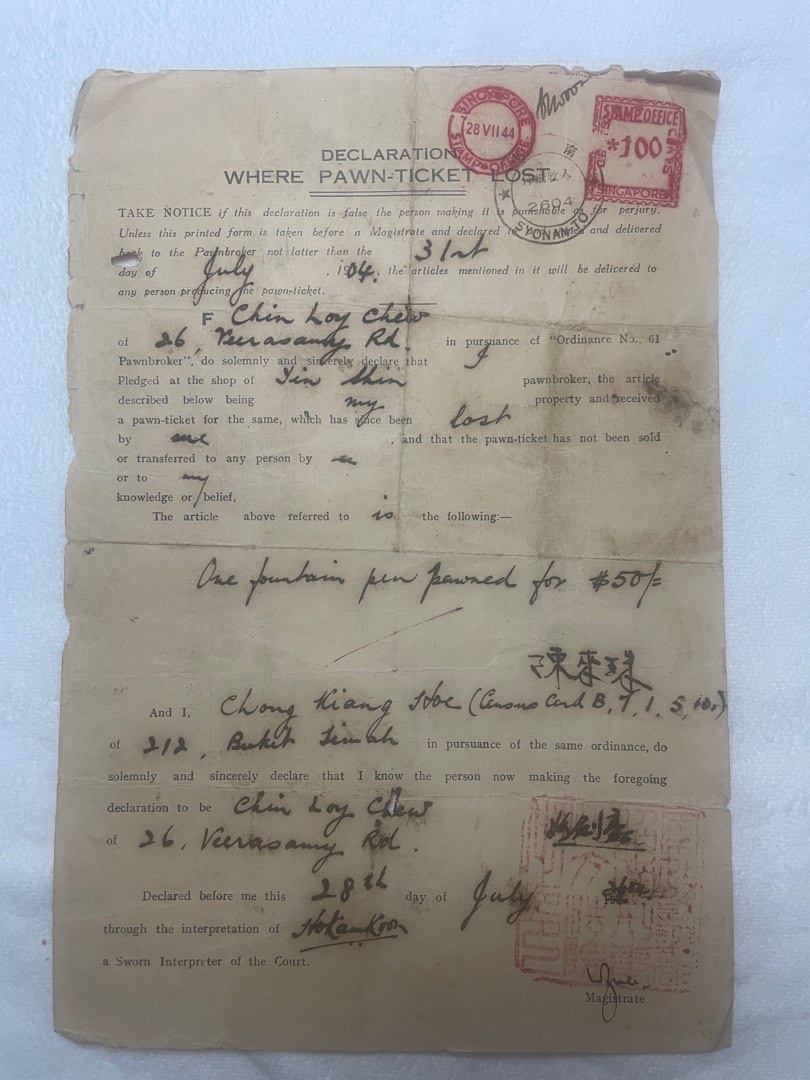 SINGAPORE
28 VII 44
STAMP OFFICE
STAMP OFFICE
*100
CENTS
SINGAPORE
昭
南
2604
SYONAN TO
DECLARATION
WHERE PAWN-TICKET LOST
TAKE NOTICE if this declaration is false the person making it is punishable as for perjury.
Unless this printed form is taken before a Magistrate and declared to and delivered
back to the Pawnbroker not latter than the 31st
day of July , 1904, the articles mentioned in it will be delivered to
any person producing the pawn-ticket.
Chin Loy Chew
of 26, Veerasamy Rd. in pursuance of "Ordinance No.. 61
Pawnbroker", do solemnly and sincerely declare that I
Pledged at the shop of Yin Shin pawnbroker, the article
described below being my property and received
a pawn-ticket for the same, which has since been lost
by me , and that the pawn-ticket has not been sold
or transferred to any person by me
or to my
knowledge or belief,
The article above referred to is the following:—
One fountain pen pawned for $50/=
陳來球
And I, Chong Kiang Hoe (Census Card B, 7, 1, 5,
of 212, Bukit Timah in pursuance of the same ordinance, do
solemnly and sincerely declare that I know the person now making the foregoing
declaration to be Chin Loy Chew
of 26, Veerasamy Rd.
Declared before me this 28th day of July
through the interpretation of Ho Kam Koon
a Sworn Interpreter of the Court.
Magistrate